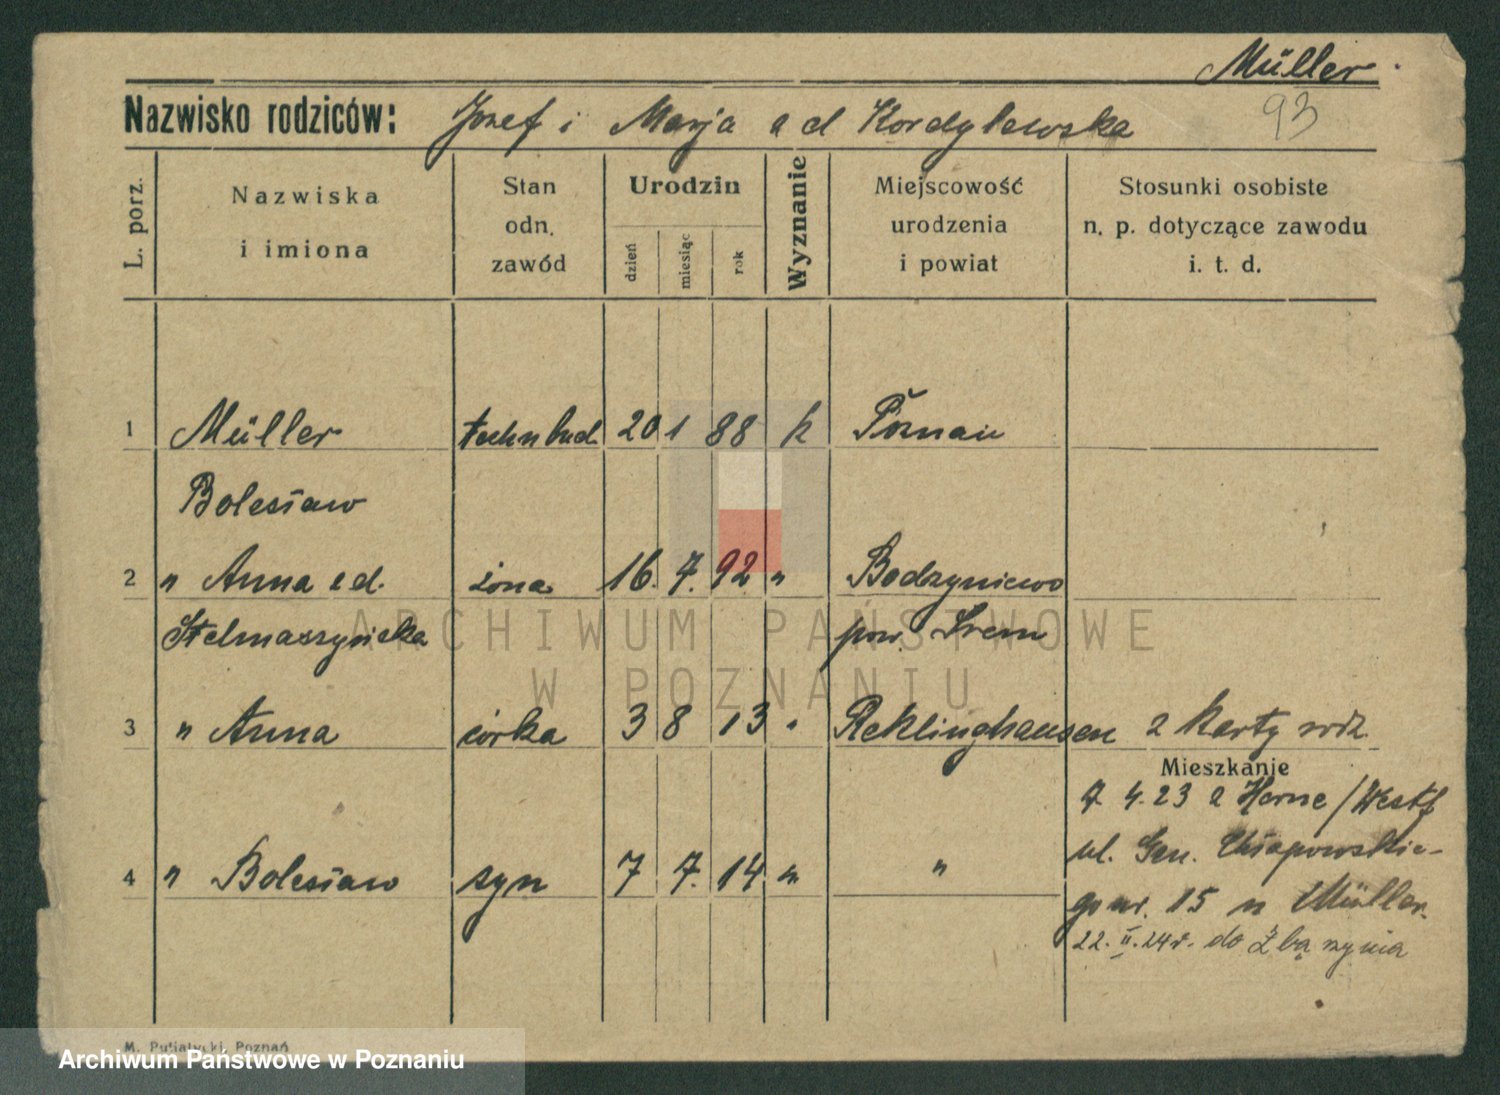 Müller
Nazwisko rodziców: Jozef i Marja zd Kordylewska
93
L. porz.
Nazwiska
i imiona
Stan
odn.
zawód
Urodzin
dzień
miesiąc
rok
Wyznanie
Miejscowość
urodzenia
i powiat
Stosunki osobiste
n. p. dotyczące zawodu
i. t. d.
1 Müller techn bud. 20 1 88 k Poznań
Bolesław
2 " Anna zd. żona 16. 7. 92 " Bodzyniewo
Stelmaszyńska pow. Śrem
3 " Anna córka 3 8 13 " Reklinghausen 2 karty rodz.
Mieszkanie
7. 4. 23 z Herne/Westf
ul. Gen. Chłapowskie-
4 " Bolesław syn 7 7. 14 " "
go nr. 15 u Müller.
22. II. 24r. do Zbąszynia
M. Putiatycki, Poznań
ARCHIWUM PAŃSTWOWE
W POZNANIU
Archiwum Państwowe w Poznaniu